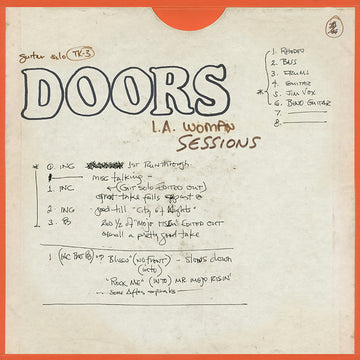 guitar solo TK-3
DOORS
L.A. WOMAN
SESSIONS
1. RHODES
2. BASS
3. DRUMS
4. GUITAR
* 5. JIM VOX
6. BIND GUITAR
7.
8.
* 0. INC 1ST RUN through.
misc talking -
1. INC (GIT SOLO EDITED OUT)
great take falls apart @
2 INC good till "City of Nights"
3. of "MOJO RISIN" EDITED OUT
overall a pretty good take
1 (INC Blues" (NO FRONT) - Slows down
(into)
"ROCK ME" (INTO) MR MOJO RISIN'
-- Some After